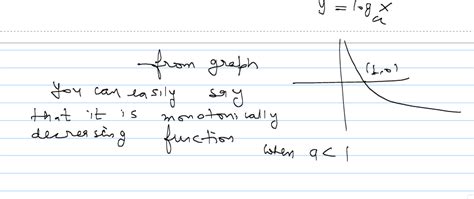 y = log x
a
from graph
(1,0)
you can easily say
that it is monotonically
decresing function
when a < 1